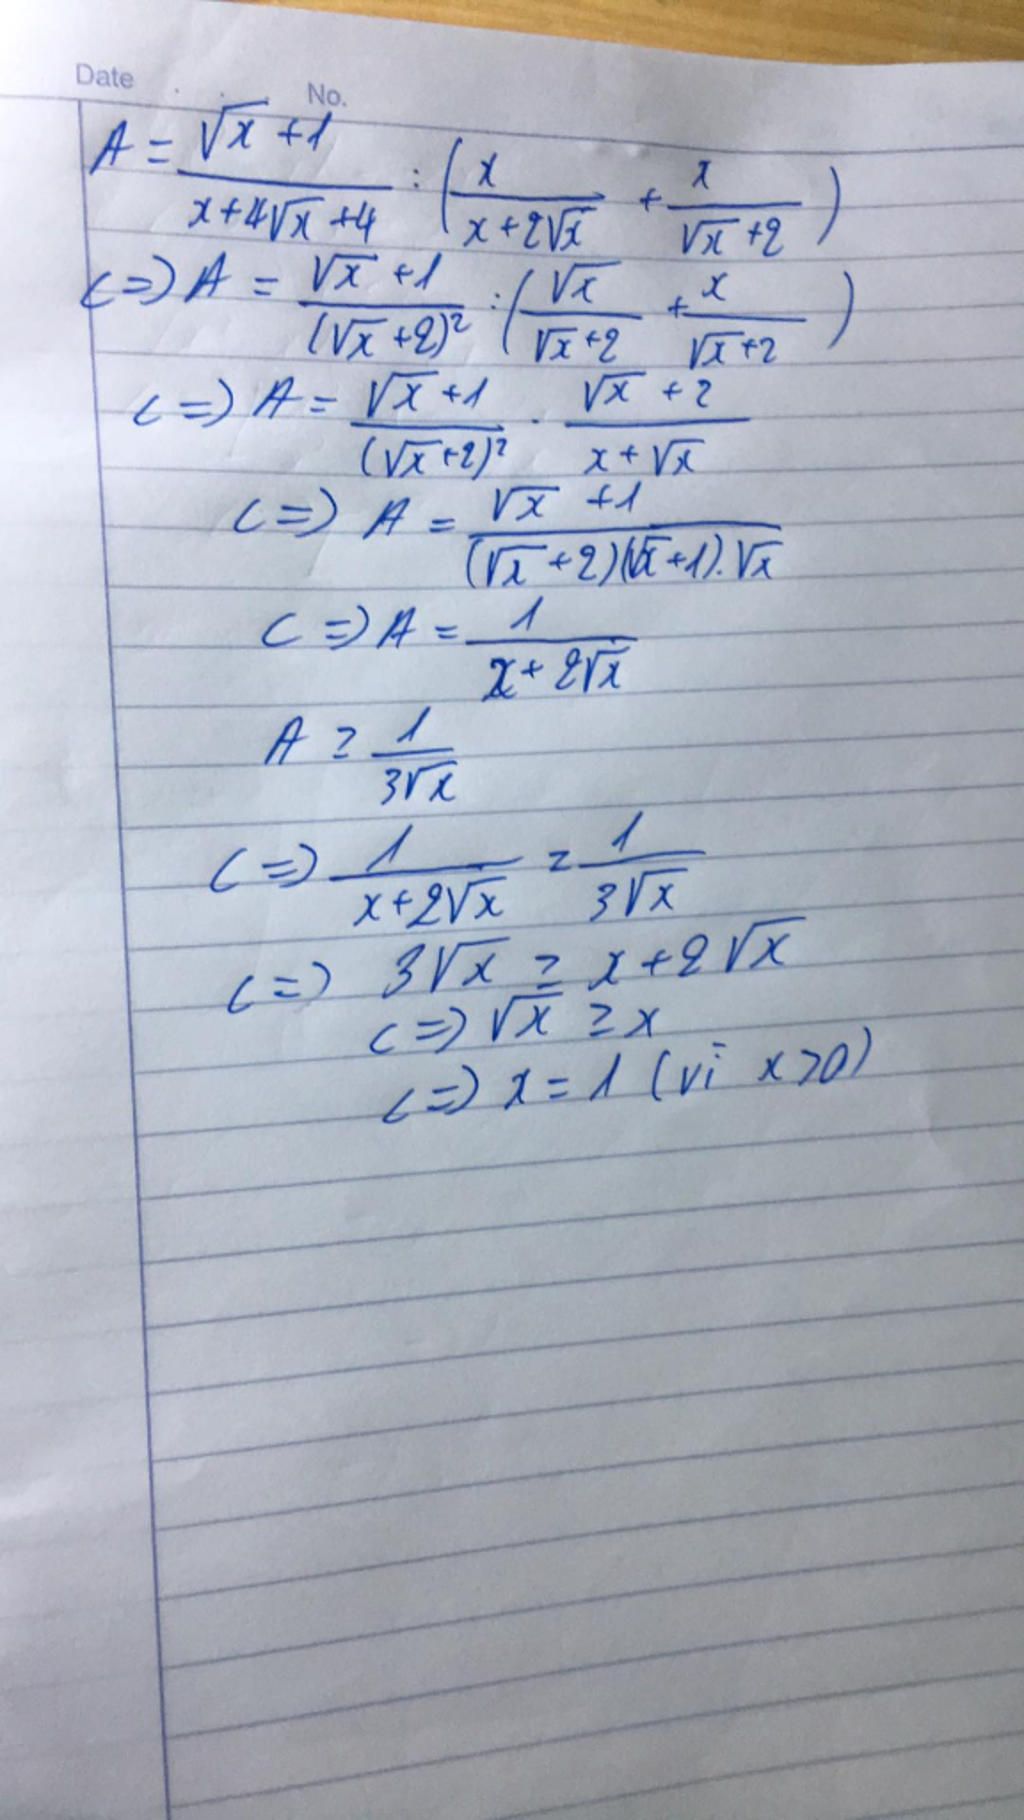 Date . . . No.
A = (√x + 1)/(x + 4√x + 4) : (x/(x + 2√x) + x/(√x + 2))
<=> A = (√x + 1)/(√x + 2)² : (√x/(√x + 2) + x/(√x + 2))
<=> A = (√x + 1)/(√x + 2)² . (√x + 2)/(x + √x)
<=> A = (√x + 1)/((√x + 2)(√x + 1).√x)
<=> A = 1/(x + 2√x)
A ≥ 1/(3√x)
<=> 1/(x + 2√x) ≥ 1/(3√x)
<=> 3√x ≥ x + 2√x
<=> √x ≥ x
<=> x = 1 (vì x > 0)